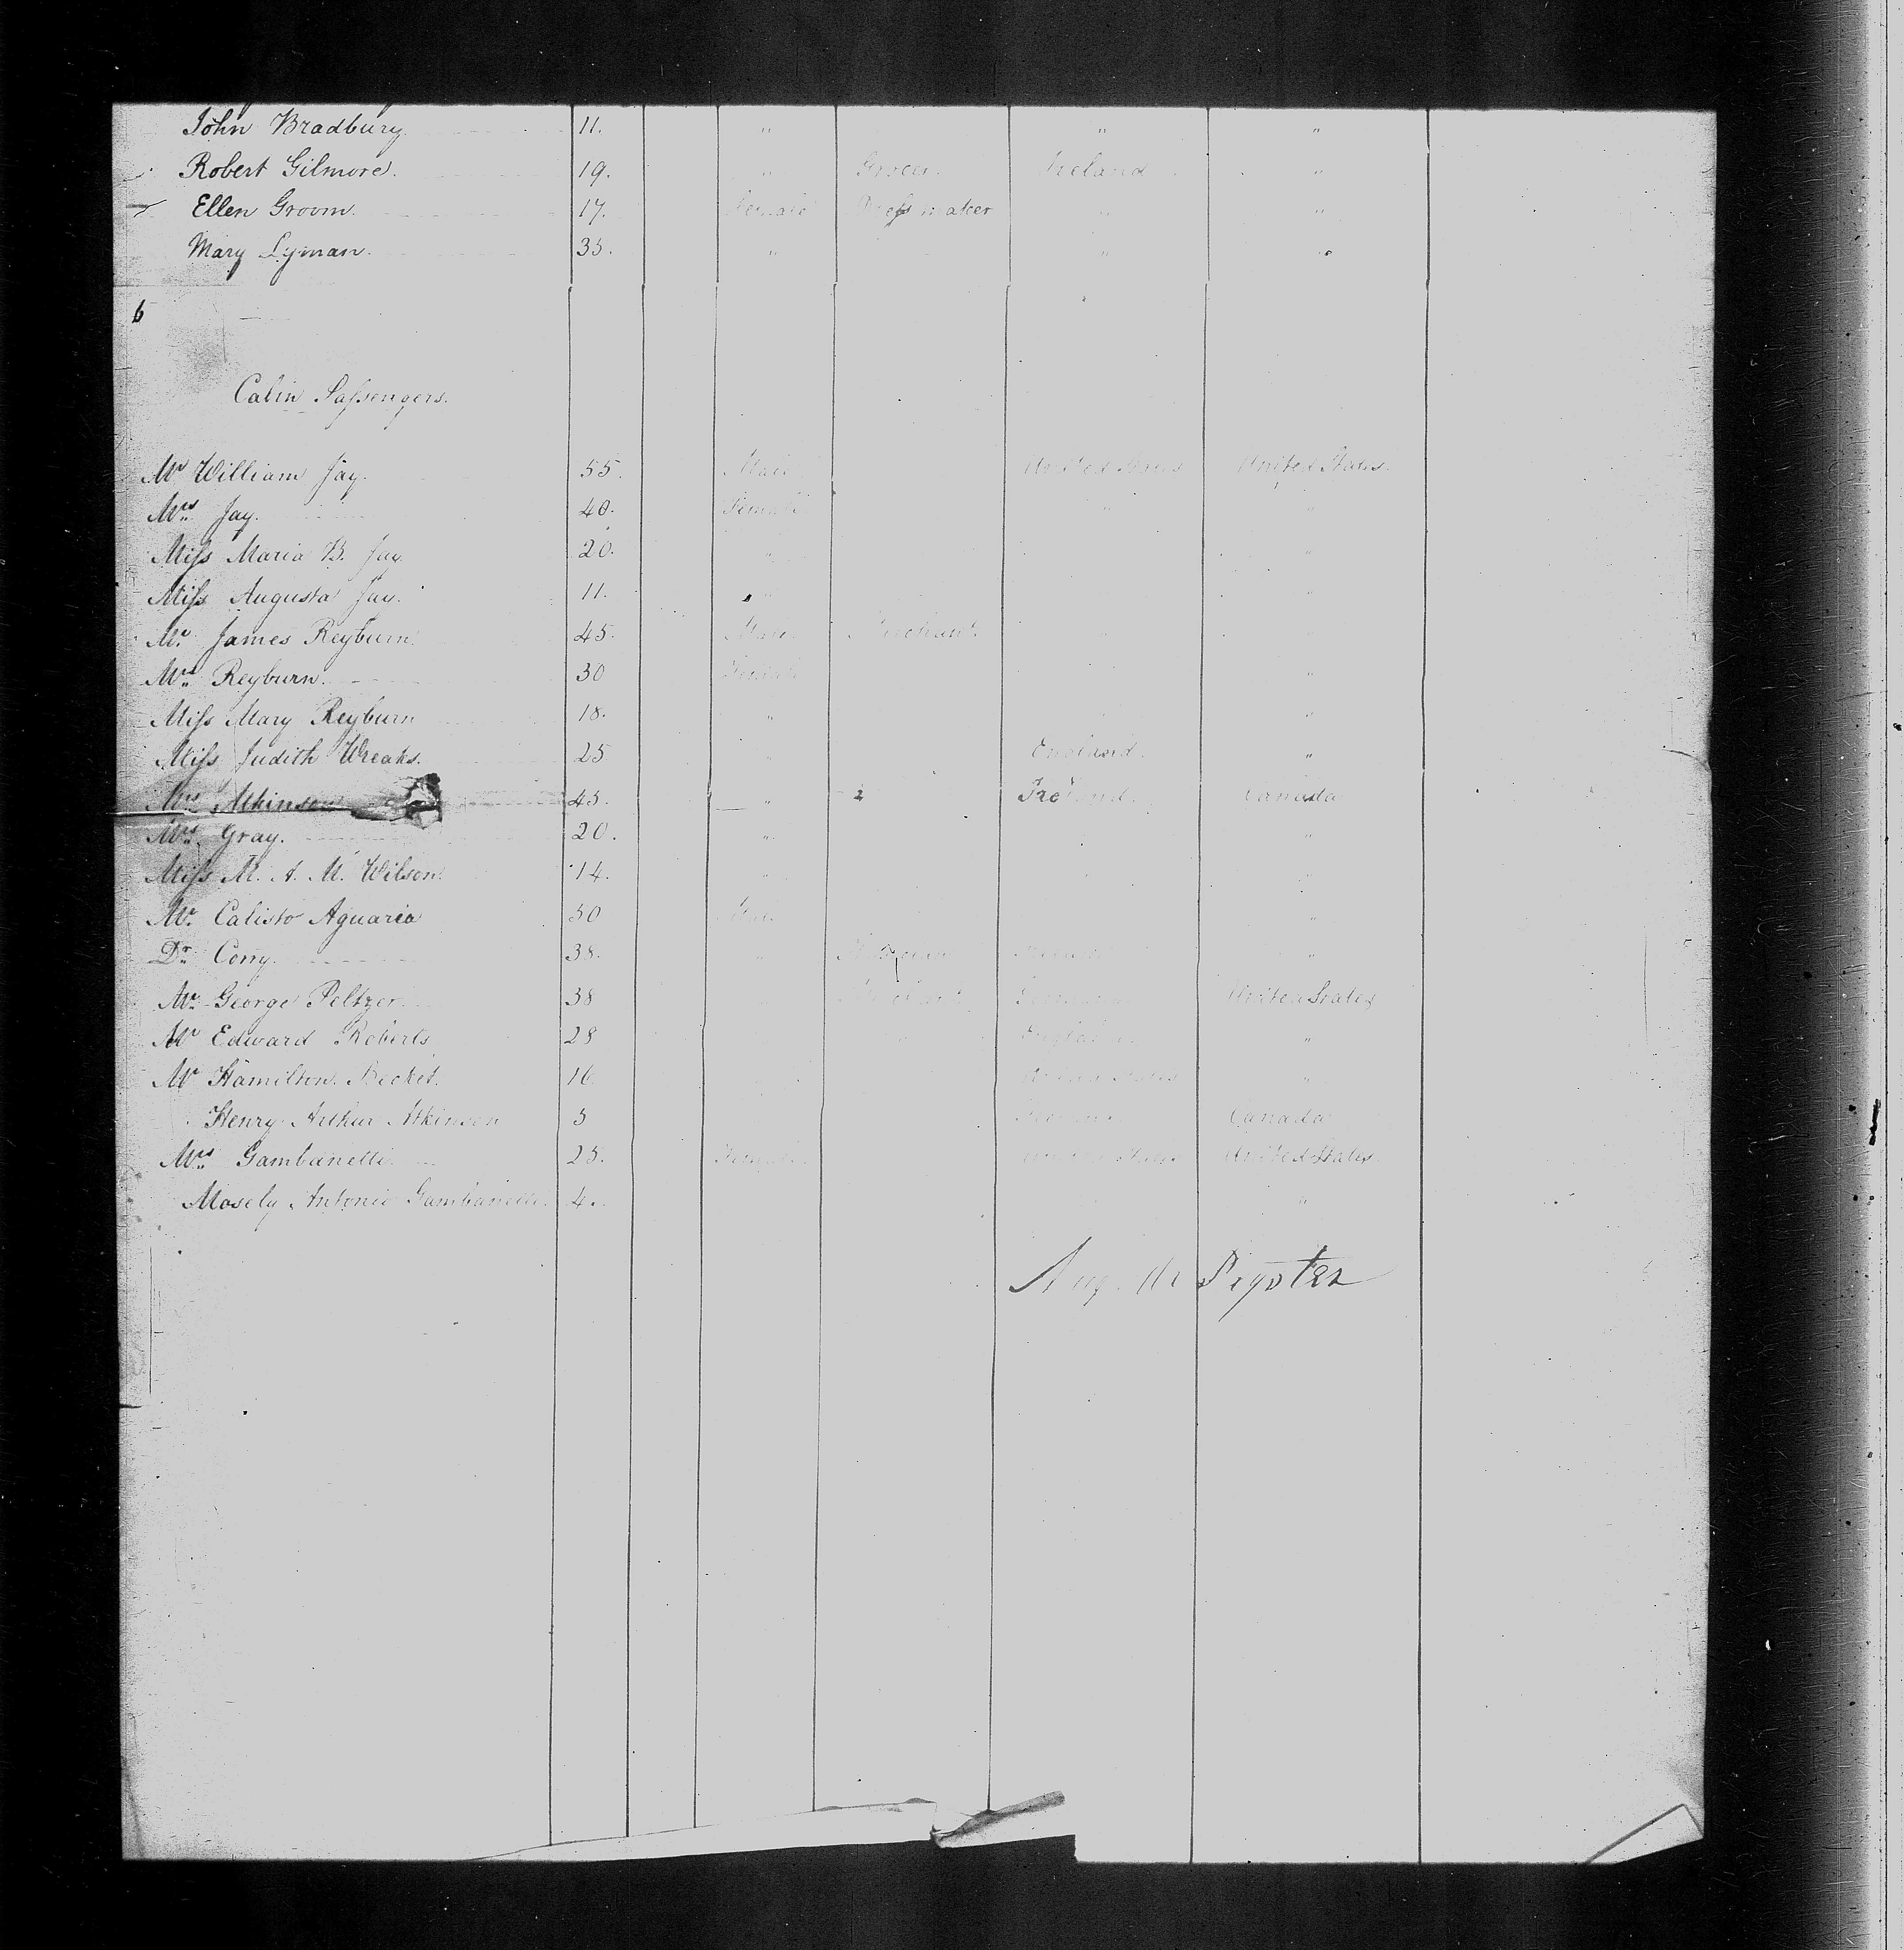 John Bradbury 11. " " "
Robert Gilmore. 19. " Grocer. Ireland "
Ellen Groom. 17. Female Dress maker " "
Mary Lyman. 35. " " "
6
Cabin Passengers.
Mr William Jay. 55. Male United States United States.
Mrs Jay. 40. Female " "
Miss Maria B. Jay. 20. " "
Miss Augusta Jay. 11. " "
Mr. James Reyburn. 45. Male Merchant "
Mrs Reyburn. 30 Female "
Miss Mary Reyburn 18. " "
Miss Judith Wreaks. 25 " England. "
Mrs Atkinson 45. " Ireland. Canada
Mrs Gray. 20. " "
Miss M. A. M. Wilson. 14. " "
Mr. Calisto Aguaria 50 "
Dr. 38. " "
Mr. George Peltzer. 38 Germany United States
Mr Edward Roberts 28 England. "
Mr Hamilton. Becket. 16. United States "
Henry Arthur Atkinson 5 Canada
Mrs Gambanelli. 25. Female. United States. United States.
Mosely Antonio Gambanelli. 4. "
Aug. De Peyster